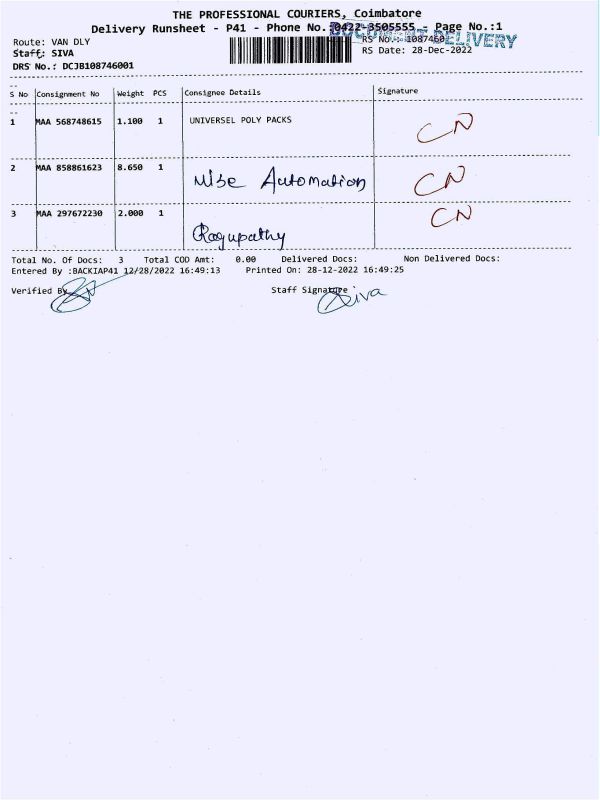 THE PROFESSIONAL COURIERS, Coimbatore
Delivery Runsheet - P41 - Phone No.:0422-3505555 - Page No.:1
DOCUMENT DELIVERY
Route: VAN DLY
RS No.: 1087460
Staff: SIVA
RS Date: 28-Dec-2022
DRS No.: DCJB108746001
S No Consignment No Weight PCS Consignee Details Signature
1 MAA 568748615 1.100 1 UNIVERSEL POLY PACKS CN
2 MAA 858861623 8.650 1 Automation CN
3 MAA 297672230 2.000 1 Ragupathy CN
Total No. Of Docs: 3 Total COD Amt: 0.00 Delivered Docs: Non Delivered Docs:
Entered By :BACKIAP41 12/28/2022 16:49:13 Printed On: 28-12-2022 16:49:25
Verified By Staff Signature Siva